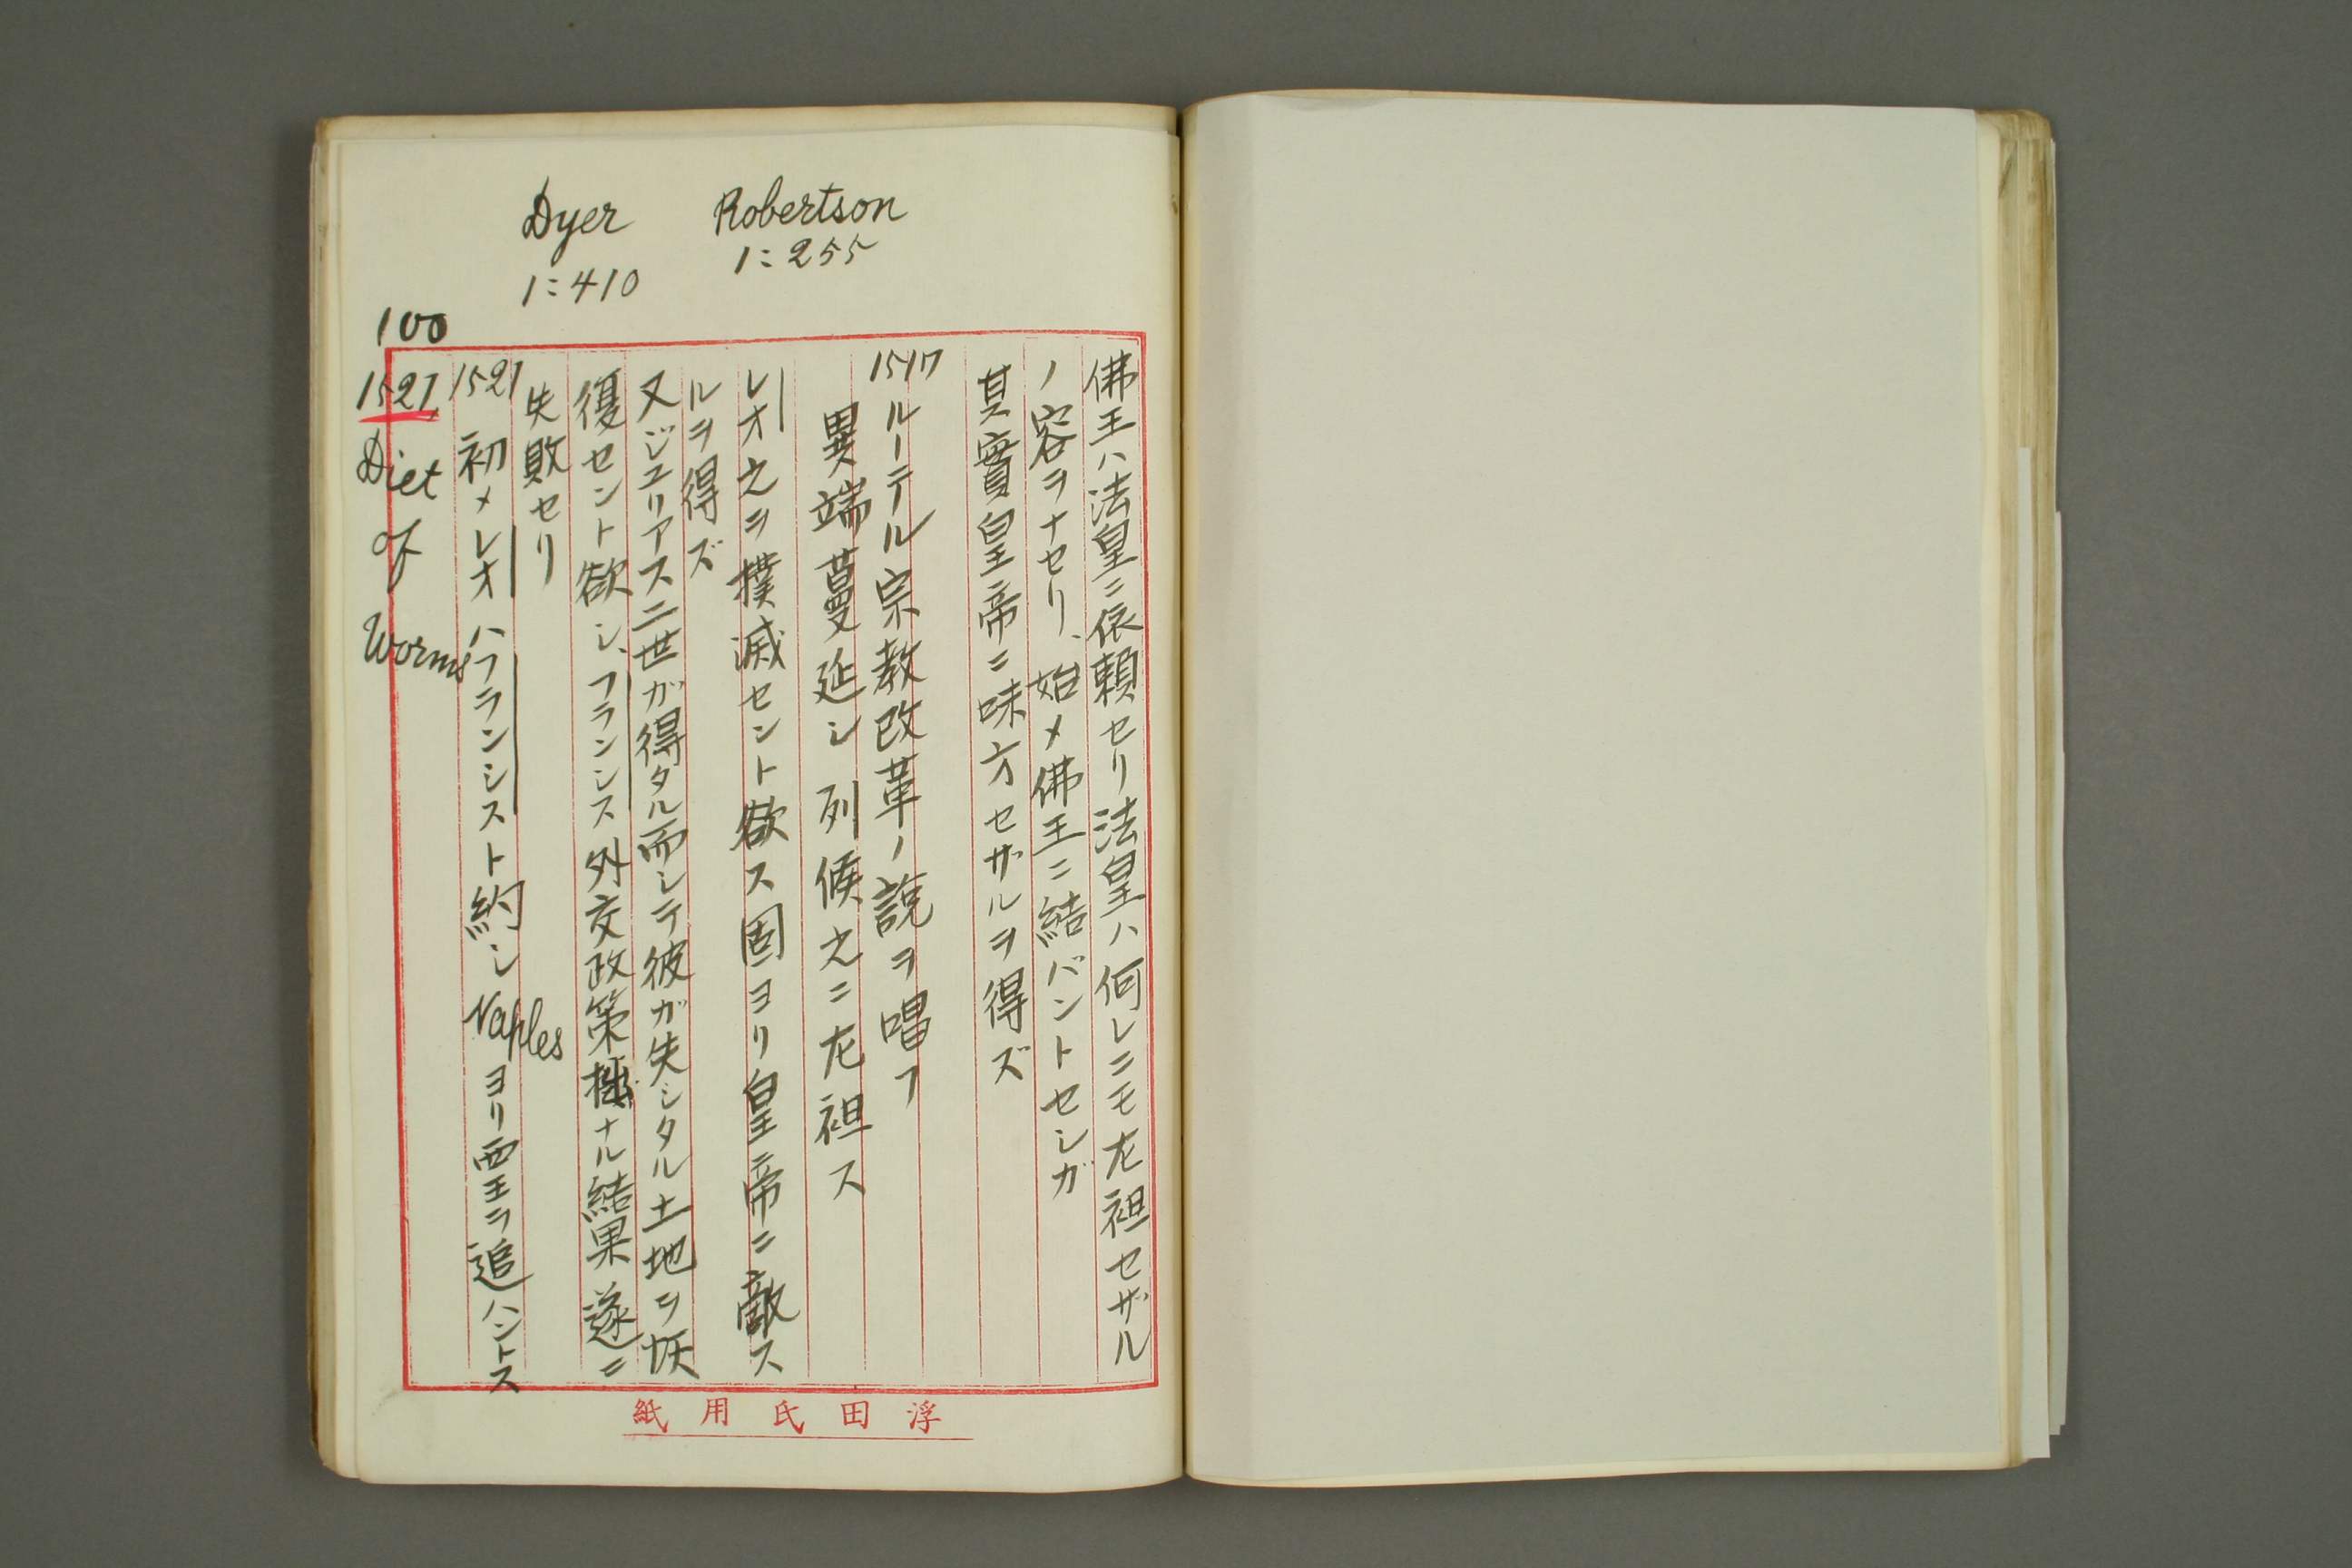 Robertson
1:255
Dyer
1:410
100
佛王ハ法皇ニ依頼セリ法皇ハ何レニモ左袒セザル
ノ容ヲナセリ、始メ佛王ニ結バントセシガ
其實皇帝ニ味方セザルヲ得ズ
1517 ルーテル宗教改革ノ説ヲ唱フ
異端蔓延シ列候之ニ左袒ス
レオ之ヲ撲滅セント欲ス固ヨリ皇帝ニ敵ス
ルヲ得ズ
又ジユリアス二世ガ得タル而シテ彼ガ失シタル土地ヲ恢
復セント欲シ、フランシス外交政策ナル結果遂ニ
失敗セリ
1521 初メレオハフランシスト約シNaplesヨリ西王ヲ追ハントス
1521, Diet of Worms
浮田氏用紙